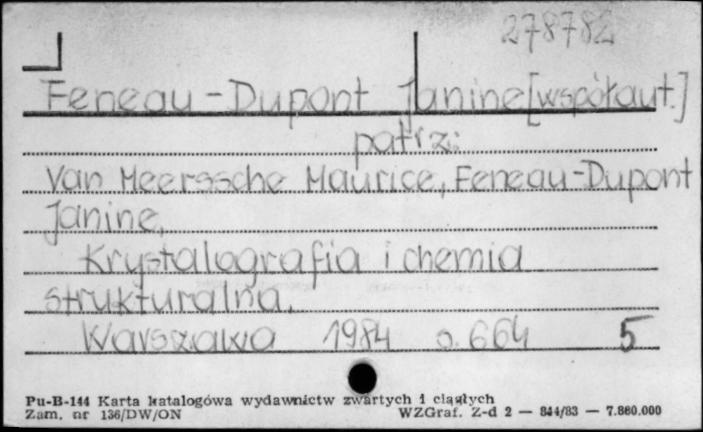 278782
Feneau-Dupont Janine [współaut.]
patrz:
Van Meerssche Maurice, Feneau-Dupont
Janine.
Krystalografia i chemia
strukturalna.
Warszawa 1984 s. 664 5
Pu-B-144 Karta katalogówa wydawnictw zwartych i ciągłych
Zam. nr 136/DW/ON WZGraf. Z-d 2 — 844/83 — 7.860.000